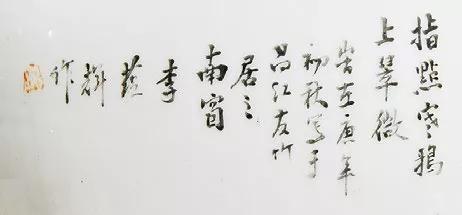 指點寒鴉
上翠微
峕在庚年
初秋寫于
昌江友竹
居之
南窗
李
作